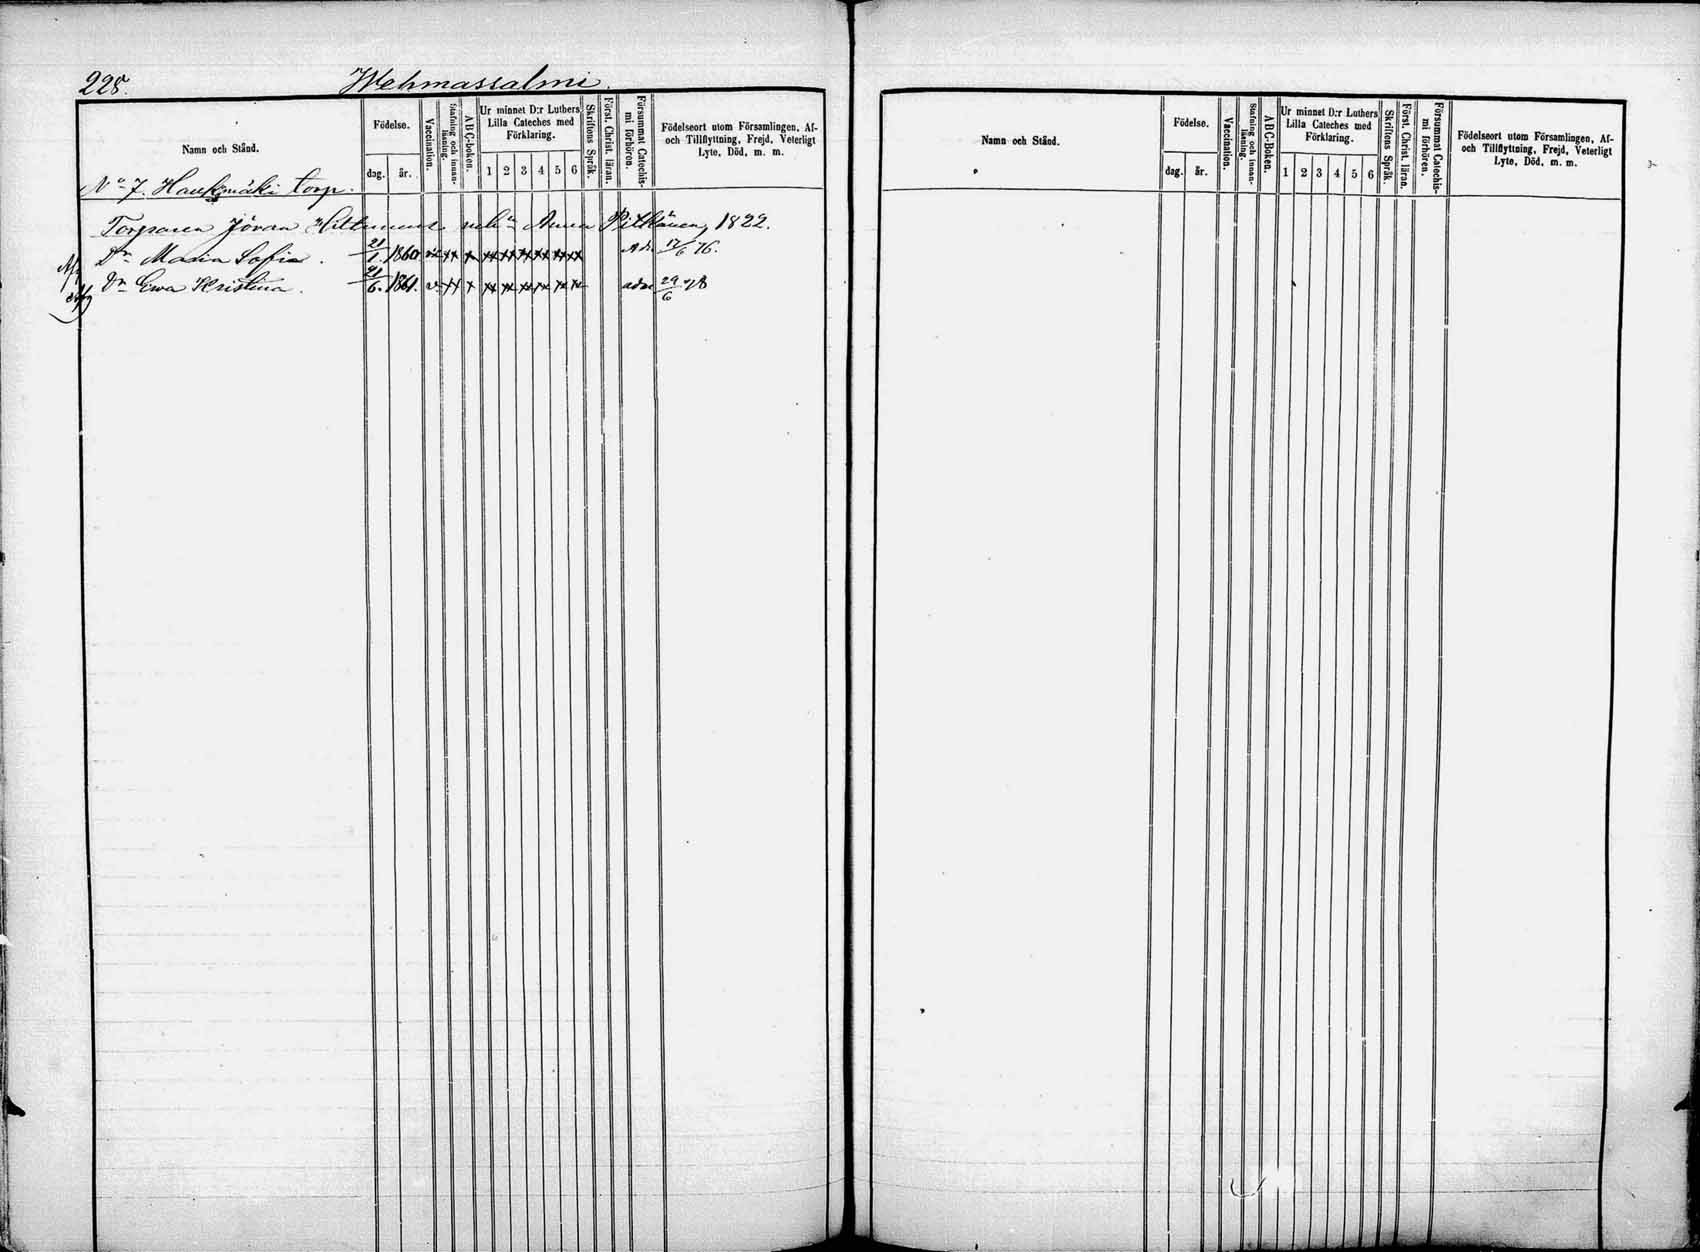 228.
Wehmassalmi.
Namn och Stånd.
Födelse.
dag.
år.
Vaccination.
Stafning och innanläsning.
ABC-boken.
Ur minnet D:r Luthers
Lilla Cateches med
Förklaring.
1 2 3 4 5 6
Skriftens Språk.
Först. Christ. läran.
Försummat Catechismi förhören.
Födelseort utom Församlingen, Af-
och Tillflyttning, Frejd, Veterligt
Lyte, Död, m. m.
No 7. Haukimäki torp.
Torparen Jöran Hiltunens Anna Pitkänen 1822.
Dr Maria Sofia. 21/1. 1860. Adm. 17/6 76.
Dr Ewa Kristina. 21/6. 1861. adm 29/6 78
Namn och Stånd.
Födelse.
dag.
år.
Vaccination.
Stafning och innanläsning.
ABC-Boken.
Ur minnet D:r Luthers
Lilla Cateches med
Förklaring.
1 2 3 4 5 6
Skriftens Språk.
Först. Christ. läran.
Försummat Catechismi förhören.
Födelseort utom Församlingen, Af-
och Tillflyttning, Frejd, Veterligt
Lyte, Död, m. m.